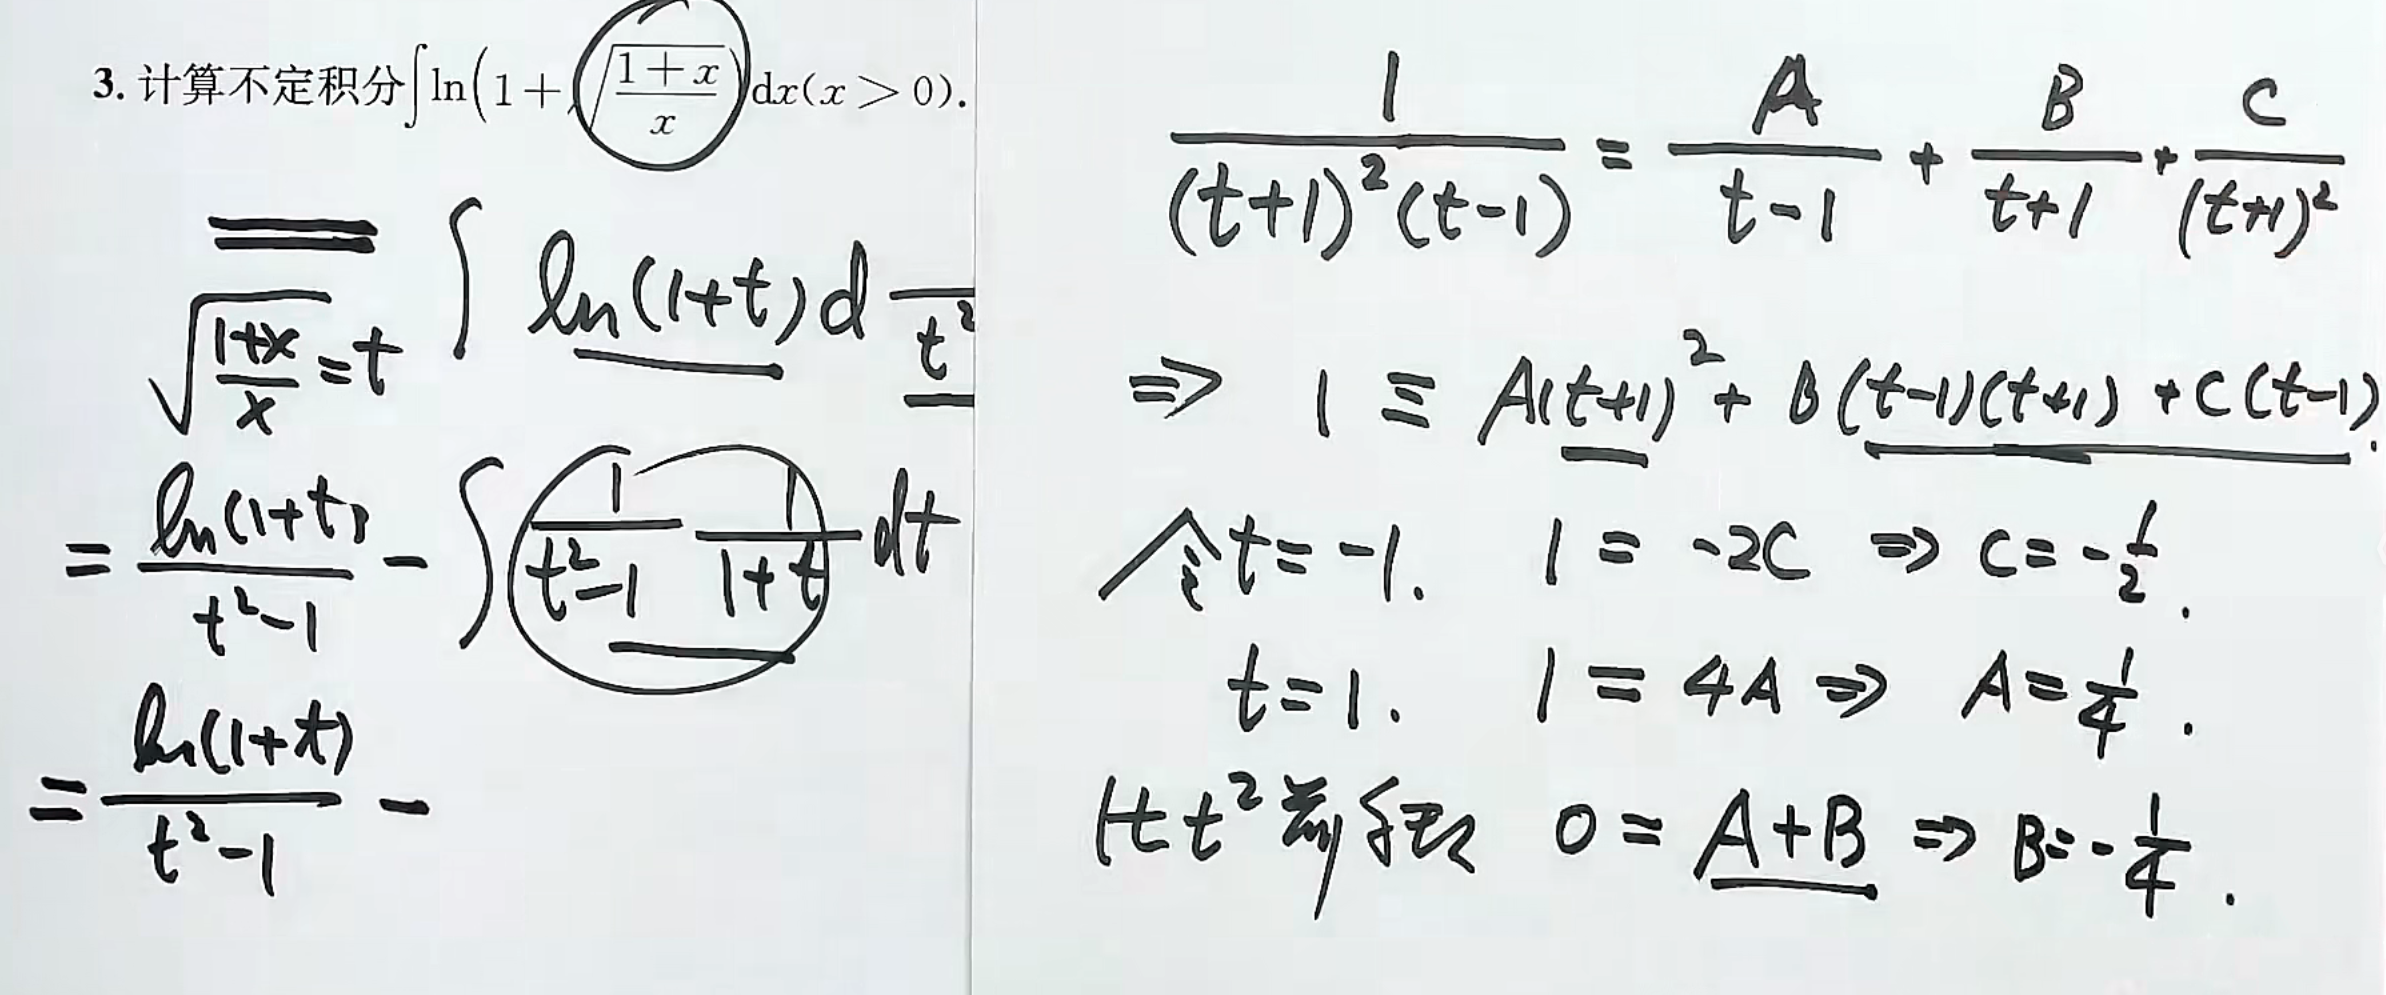 3. 计算不定积分∫ln(1+√((1+x)/x))dx(x>0).
∫ ln(1+t) d 1/t²
√((1+x)/x) = t
= ln(1+t)/(t²-1) - ∫ 1/(t²-1) 1/(1+t) dt
= ln(1+t)/(t²-1) -
1/((t+1)²(t-1)) = A/(t-1) + B/(t+1) + C/(t+1)²
⇒ 1 ≡ A(t+1)² + B(t-1)(t+1) + C(t-1).
令t=-1. 1 = -2C ⇒ C = -1/2.
t=1. 1 = 4A ⇒ A = 1/4.
比t²前系数 0 = A+B ⇒ B = -1/4.